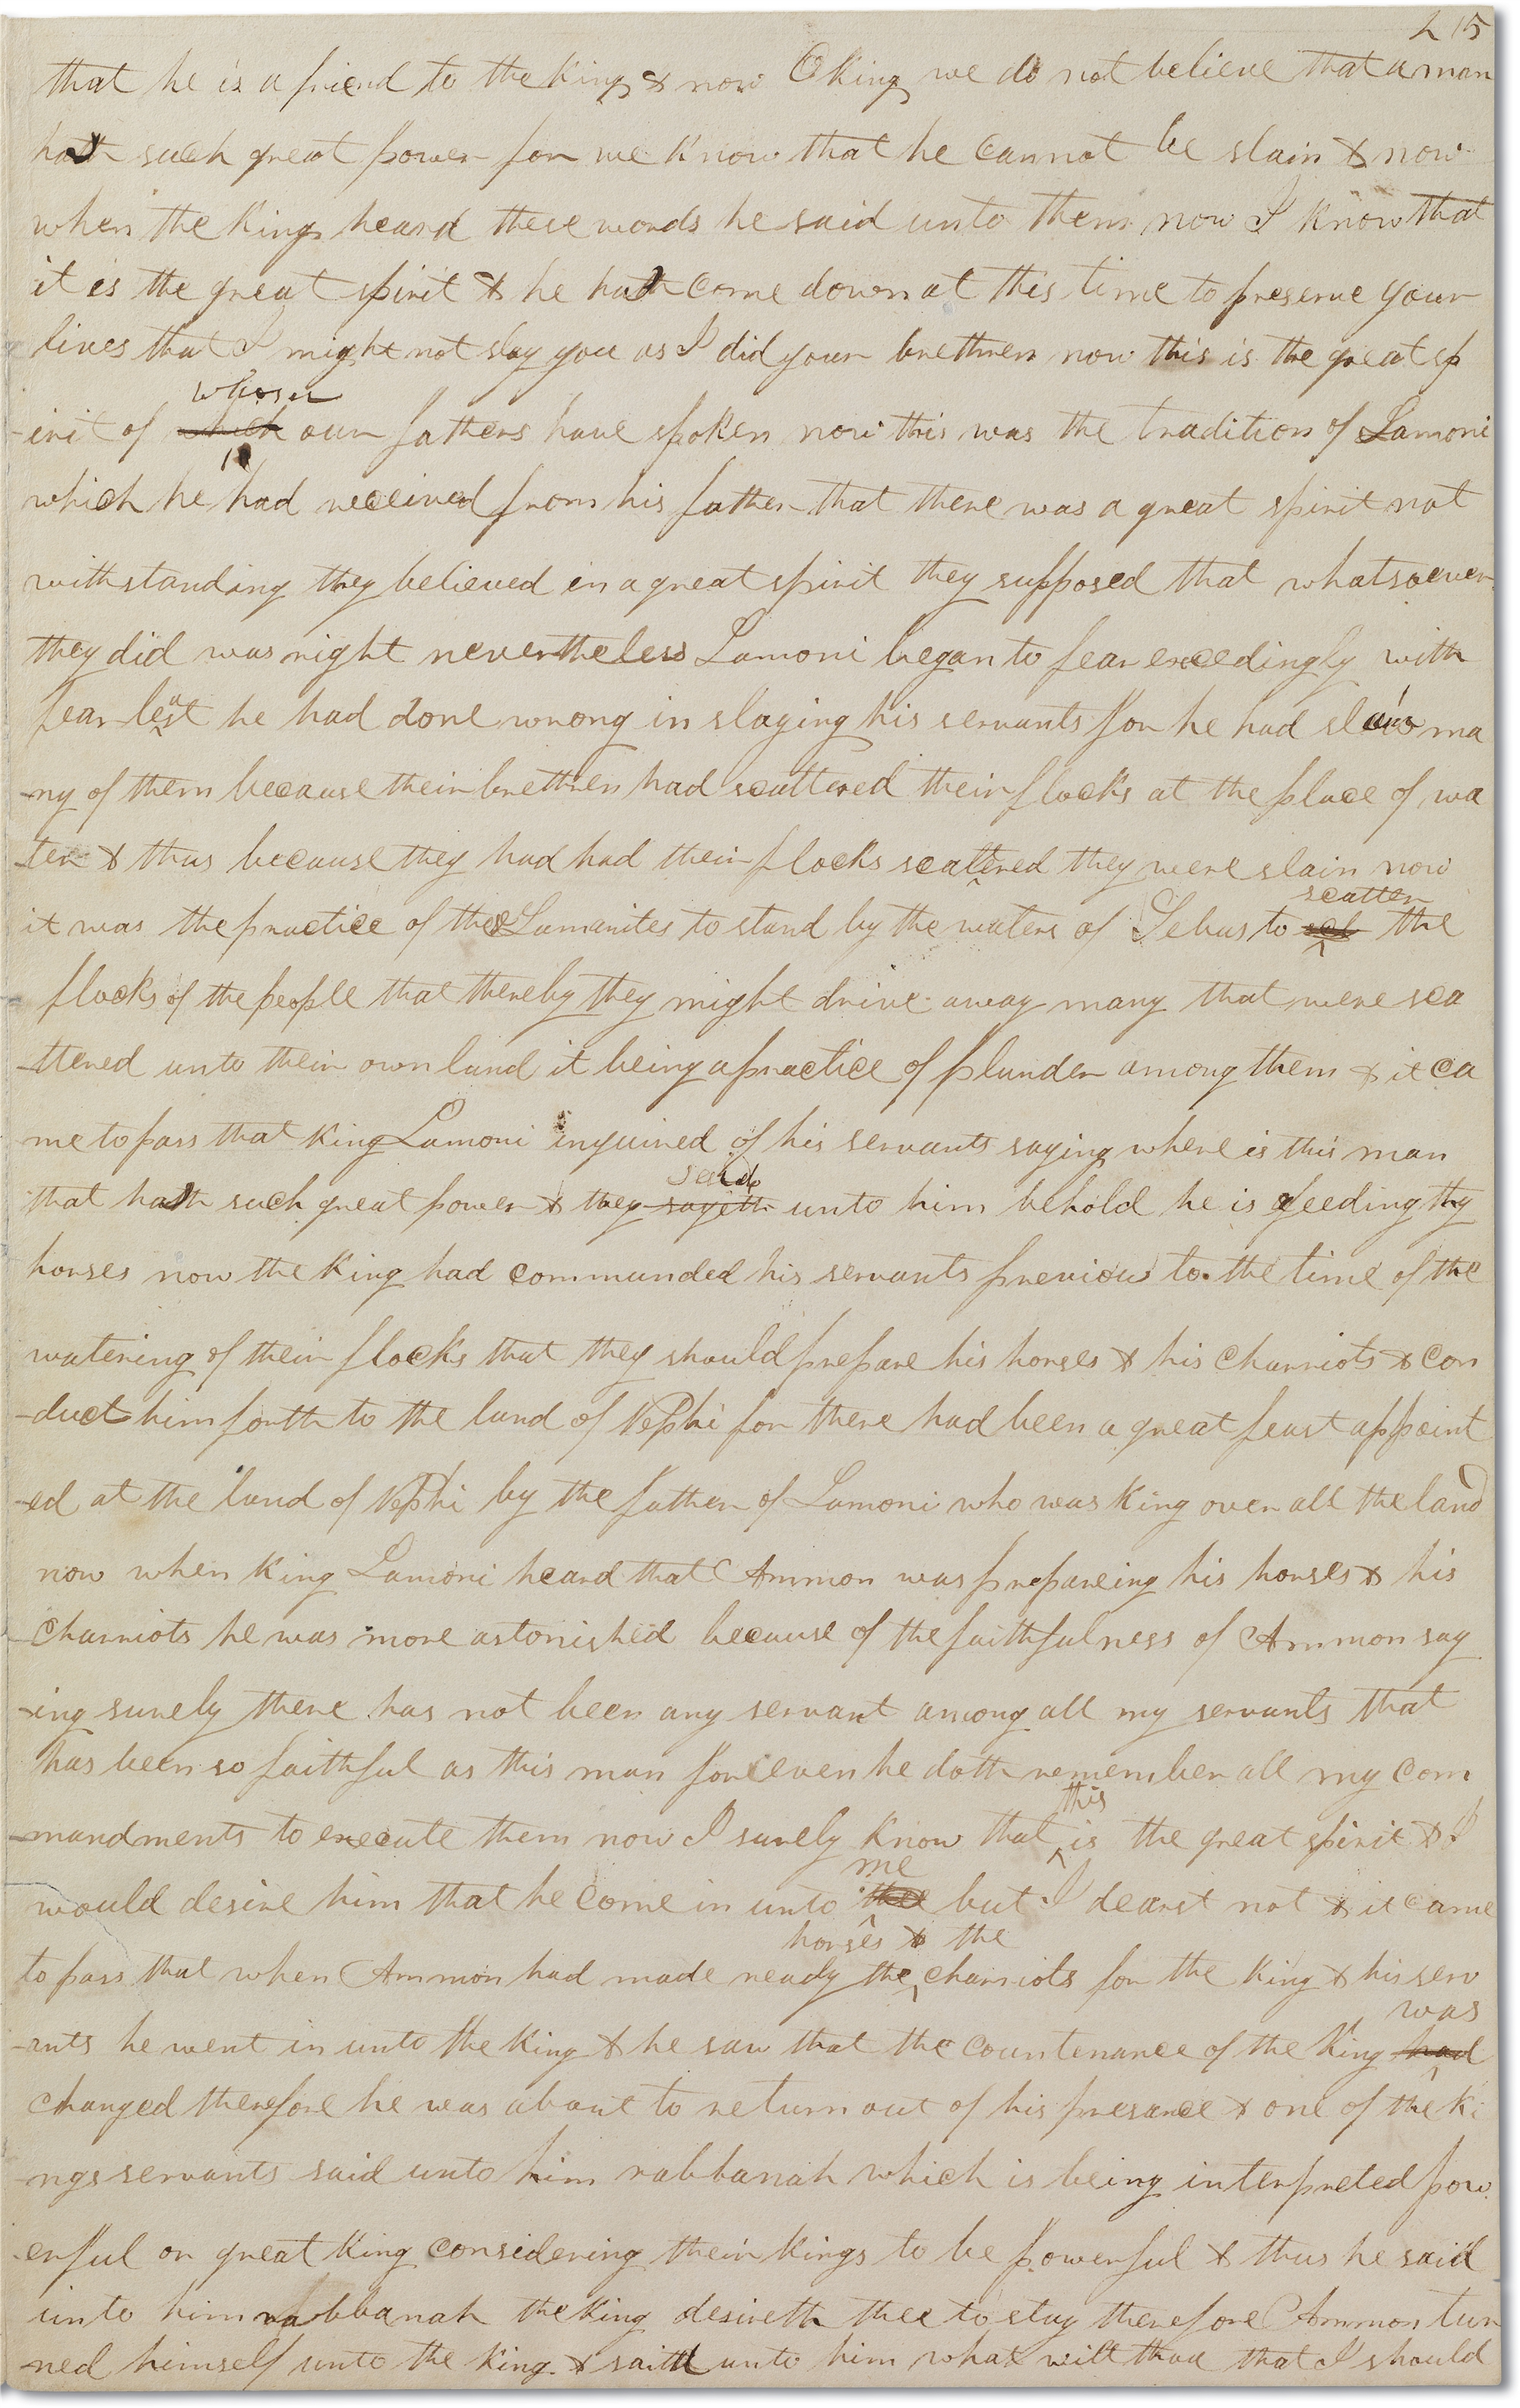 215
that he is a friend to the king & now O king we do not believe that a man
hath such great power for we know that he cannot be slain & now
when the king heard these words he said unto them now I know that
it is the great spirit & he hath come down at this time to preserve your
lives that I might not slay you as I did your brethren now this is the great sp
whom
-irit of which our fathers have spoken now this was the tradition of Lamoni
which he had received from his father that there was a great spirit not
withstanding they believed in a great spirit they supposed that whatsoever
they did was right nevertheless Lamoni began to fear exceedingly with
fear lest he had done wrong in slaying his servants for he had slain ma
-ny of them because their brethren had scattered their flocks at the place of wa
-ter & thus because they had had their flocks scattered they were slain now
scatter
it was the practice of these Lamanites to stand by the waters of Sebus to the
flocks of the people that thereby they might drive away many that were sca
-ttered unto their own land it being a practice of plunder among them & it ca
me to pass that king Lamoni inquired of his servants saying where is this man
said
that hath such great power & they sayeth unto him behold he is feeding thy
horses now the king had commanded his servants previous to the time of the
watering of their flocks that they should prepare his horses & his charriots & con
-duct him forth to the land of Nephi for there had been a great feast appoint
-ed at the land of Nephi by the father of Lamoni who was king over all the land
now when king Lamoni heard that Ammon was prepareing his horses & his
charriots he was more astonished because of the faithfulness of Ammon say
-ing surely there has not been any servant among all my servants that
has been so faithful as this man for even he doth remember all my com
this
-mandments to execute them now I surely know that is the great spirit & I
me
would desire him that he come in unto thee but I dearst not & it came
horses & the
to pass that when Ammon had made ready the charriots for the king & his serv
was
-ants he went in unto the king & he saw that the countenance of the king had
changed therefore he was about to return out of his presance & one of the ki
-ngs servants said unto him rabbanah which is being interpreted pow
-erful or great king considering their kings to be powerful & thus he said
unto him rabbanah the king desireth thee to stay therefore Ammon tur
-ned himself unto the king & saith unto him what wilt thou that I should